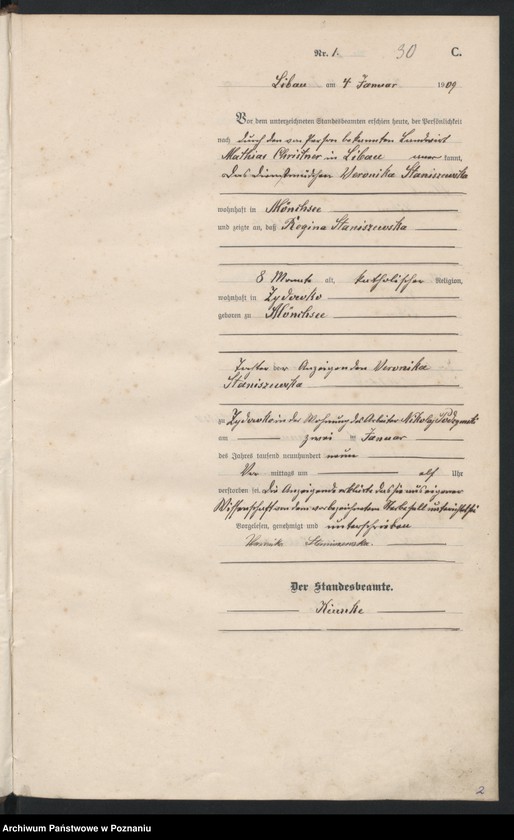 Nr. 1. 30 C.
Libau am 4 Januar 1909
Vor dem unterzeichneten Standesbeamten erschien heute, der Persönlichkeit
nach durch den von Person bekannten Landwirt
Mathias Christner in Libau aner kannt,
das Dienstmädchen Veronika Staniszewska
wohnhaft in Mönchsee
und zeigte an, daß Regina Staniszewska
8 Monate alt, katholischer Religion,
wohnhaft in Zydowko
geboren zu Mönchsee
Tochter der Anzeigenden Veronika
Staniszewska
zu Zydowko in der Wohnung des Arbeiter Nikolaj
am zwei Januar
des Jahres tausend neunhundert neun
Vor mittags um elf Uhr
verstorben sei. Die Anzeigende erklärte daß sie aus eigener
Wissenschaft von dem vorbezeichneten Sterbefall unterrichtet sei
Vorgelesen, genehmigt und unterschrieben
Veronika Staniszewska.
Der Standesbeamte.
2
Archiwum Państwowe w Poznaniu